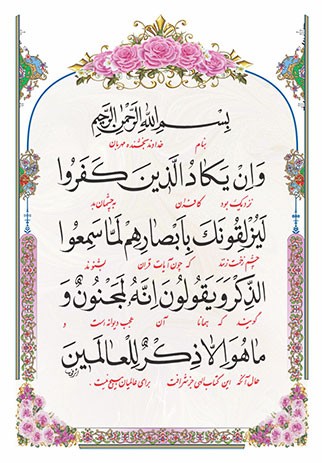 بِسْمِ اللهِ الرَّحْمٰنِ الرَّحِيْمِ
بنام خداوند بخشنده مهربان
وَاِنْ يَكَادُ الَّذينَ كَفَرُوا
نزدیک بود کافران به چشمان بد
لَيُزْلِقُونَكَ بِاَبْصارِهِمْ لَمَّا سَمِعُوا
چشم زخمت زنند که چون آیات قرآن بشنوند
الذِّكْرَ وَيَقُولُونَ اِنَّهُ لَمَجْنُونٌ وَ
گویند که همانا آن عجب دیوانه است و
ما هُوَ اِلّا ذِكْرٌ لِلْعالَمينَ
حال آنکه این کتاب الهی جز شرافت برای عالمیان هیچ نیست.